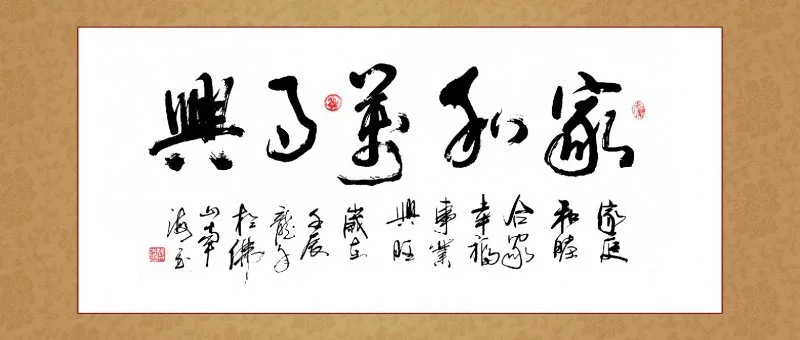 家和萬事興
家庭
和睦
合家
幸福
事業
興旺
歲在
壬辰
龍年
於佛
山南
海